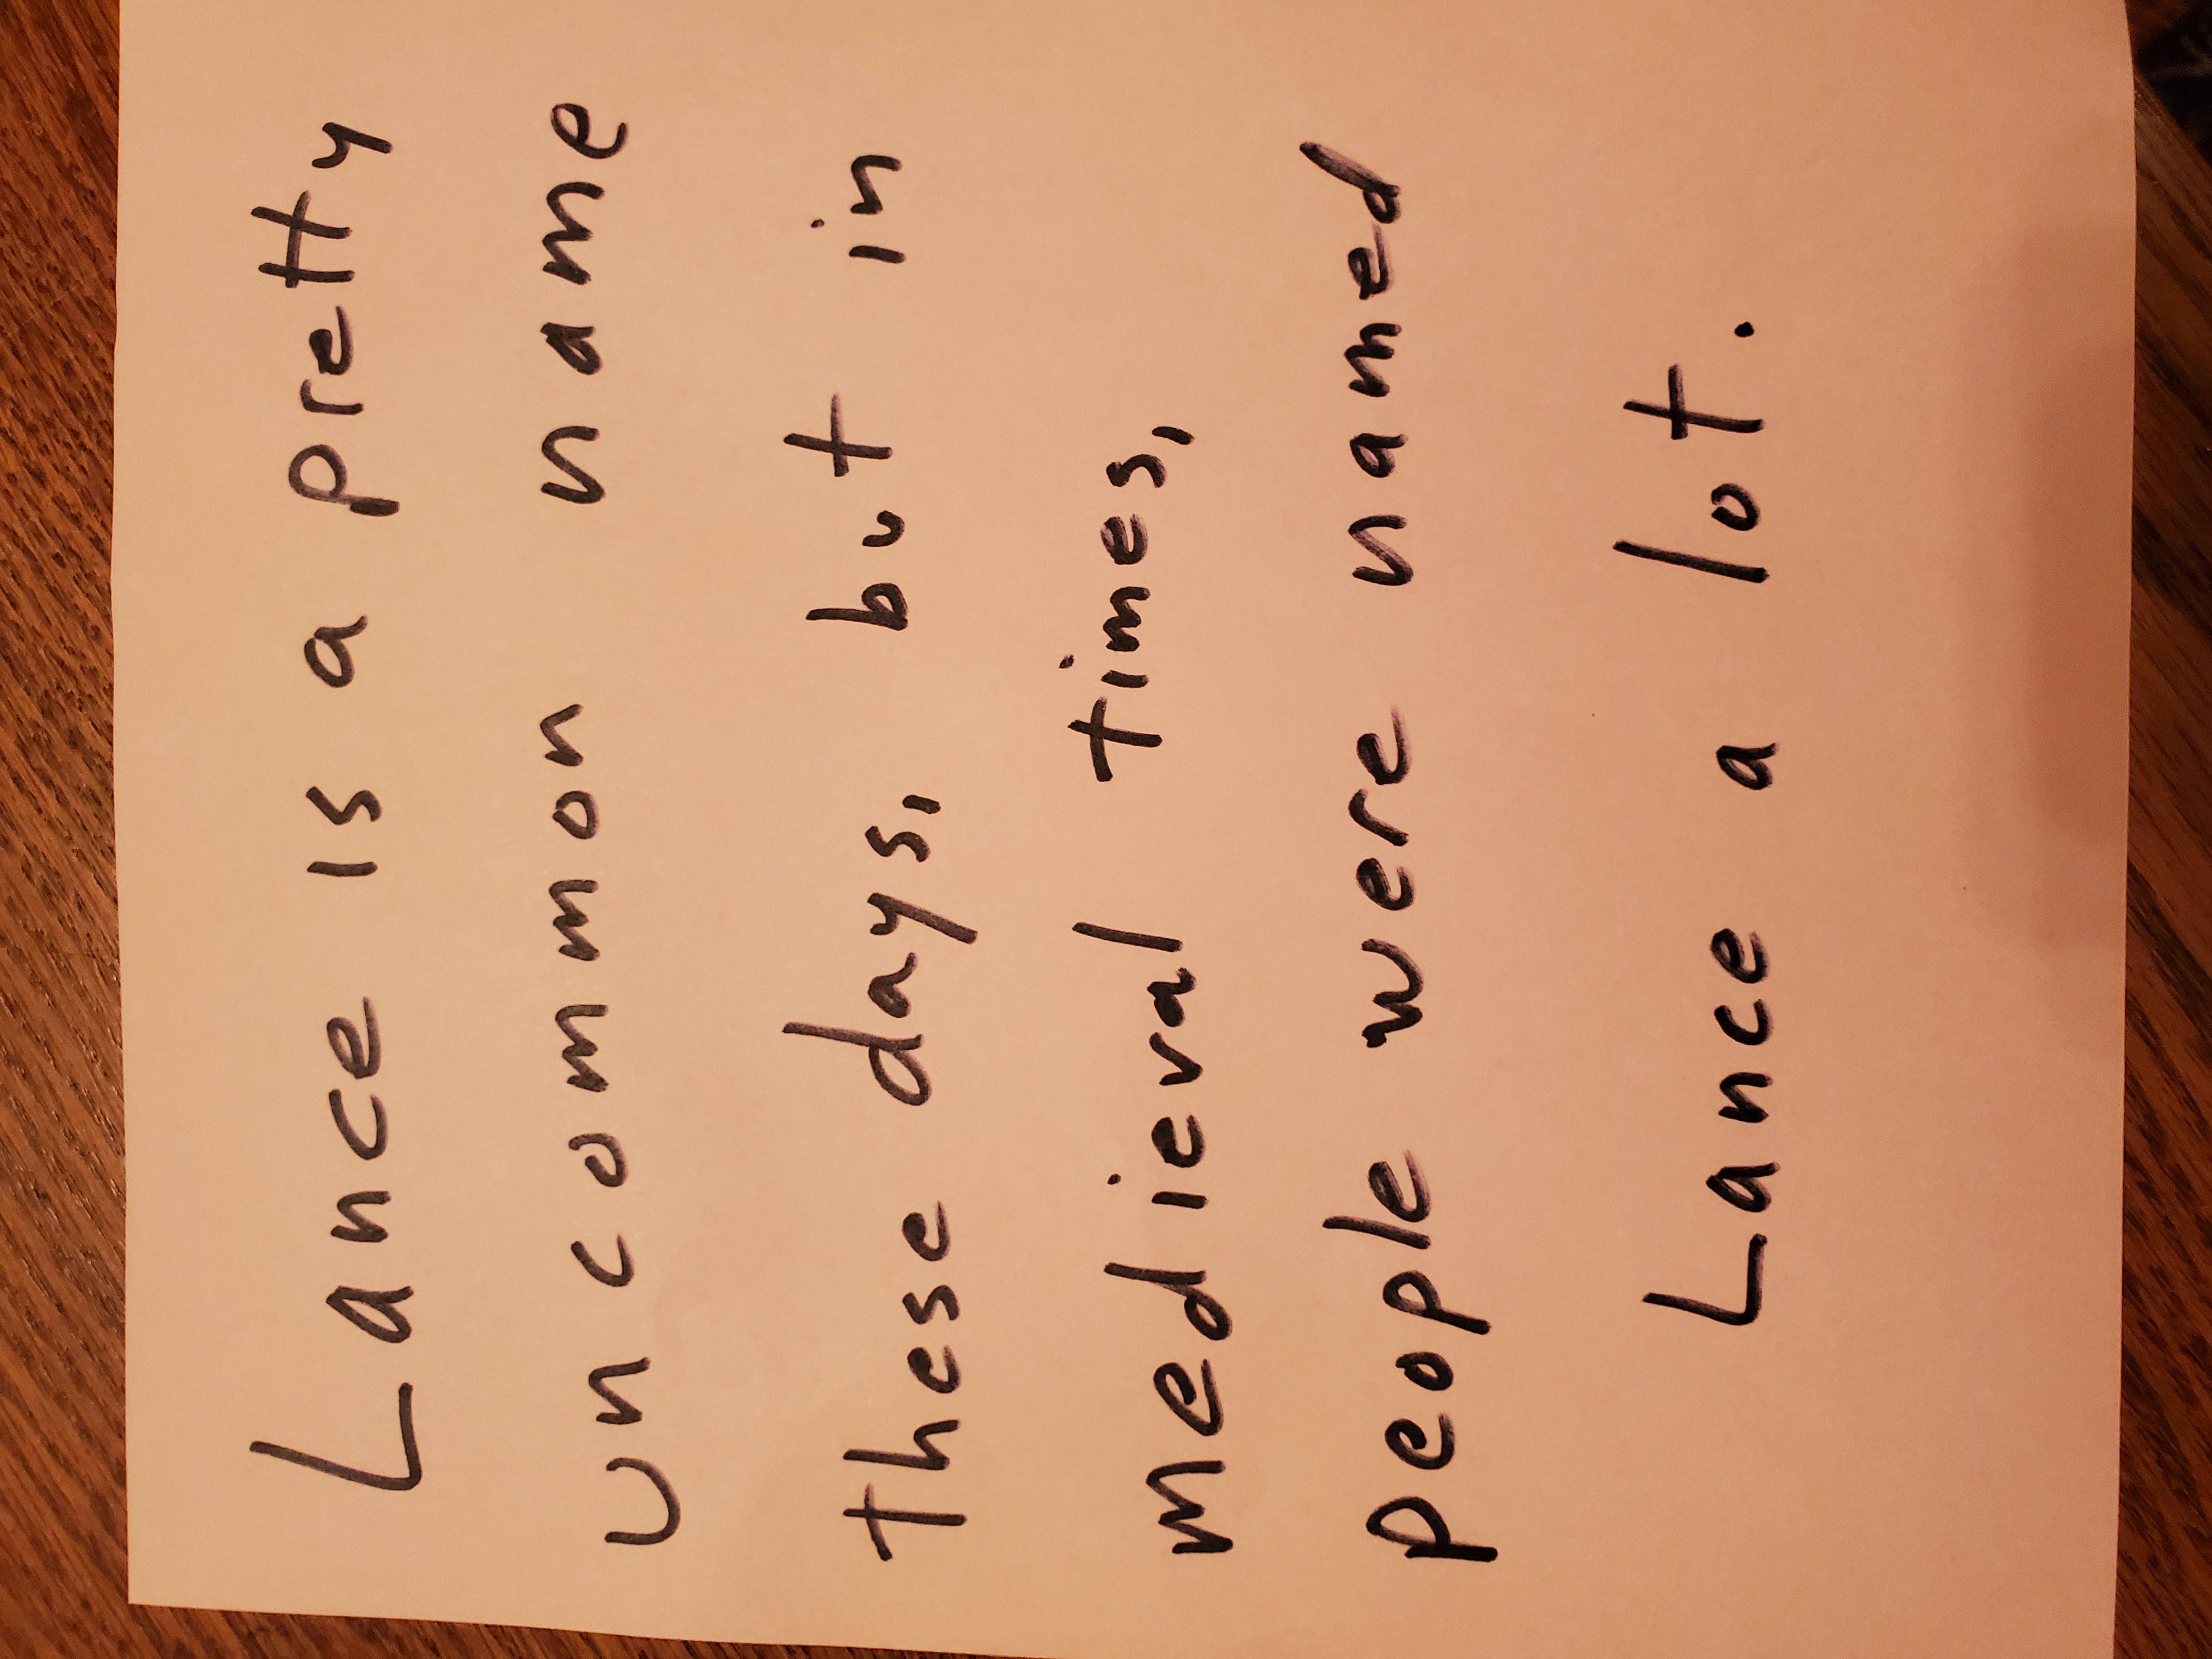 Lance is a pretty
uncommon name
these days, but in
medieval times,
people were named
Lance a lot.